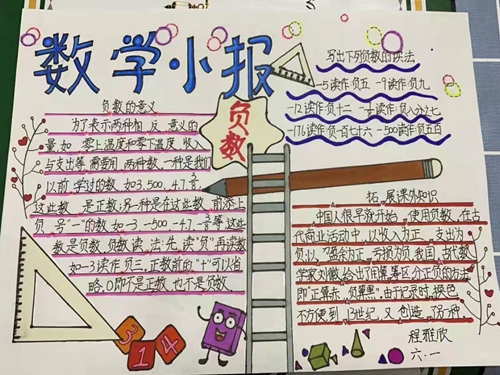 数学小报
负数的意义
为了表示两种相反意义的
量,如零上温度和零下温度、收入
与支出等,需要用两种数,一种是我们
以前学过的数如3.500、4.7、
这些数是正数;另一种是在这些数前添上
负号"—"的数如-3、-500、-4.7、等,这些
数是负数,负数读法:先读"负"再读数
如-3读作负三,正数前的"+"可以省
略,0即不是正数,也不是负数
3 1 4
负数
写出下列负数的读法
-5读作:负五 -9读作:负九
-12读作:负十二
-176读作:负一百七十六 -500读作:负五百
拓展课外知识
中国人很早就开始使用负数,在古
代商业活动中,以收入为正,支出为
负,以盈余为正,亏损为负,我国古代数
学家刘徽给出了用算筹区分正负的方法
即"正算赤,负算黑",由于记录时换色
不方便,到13世纪,又创造了另一种。
程雅欣
六.一